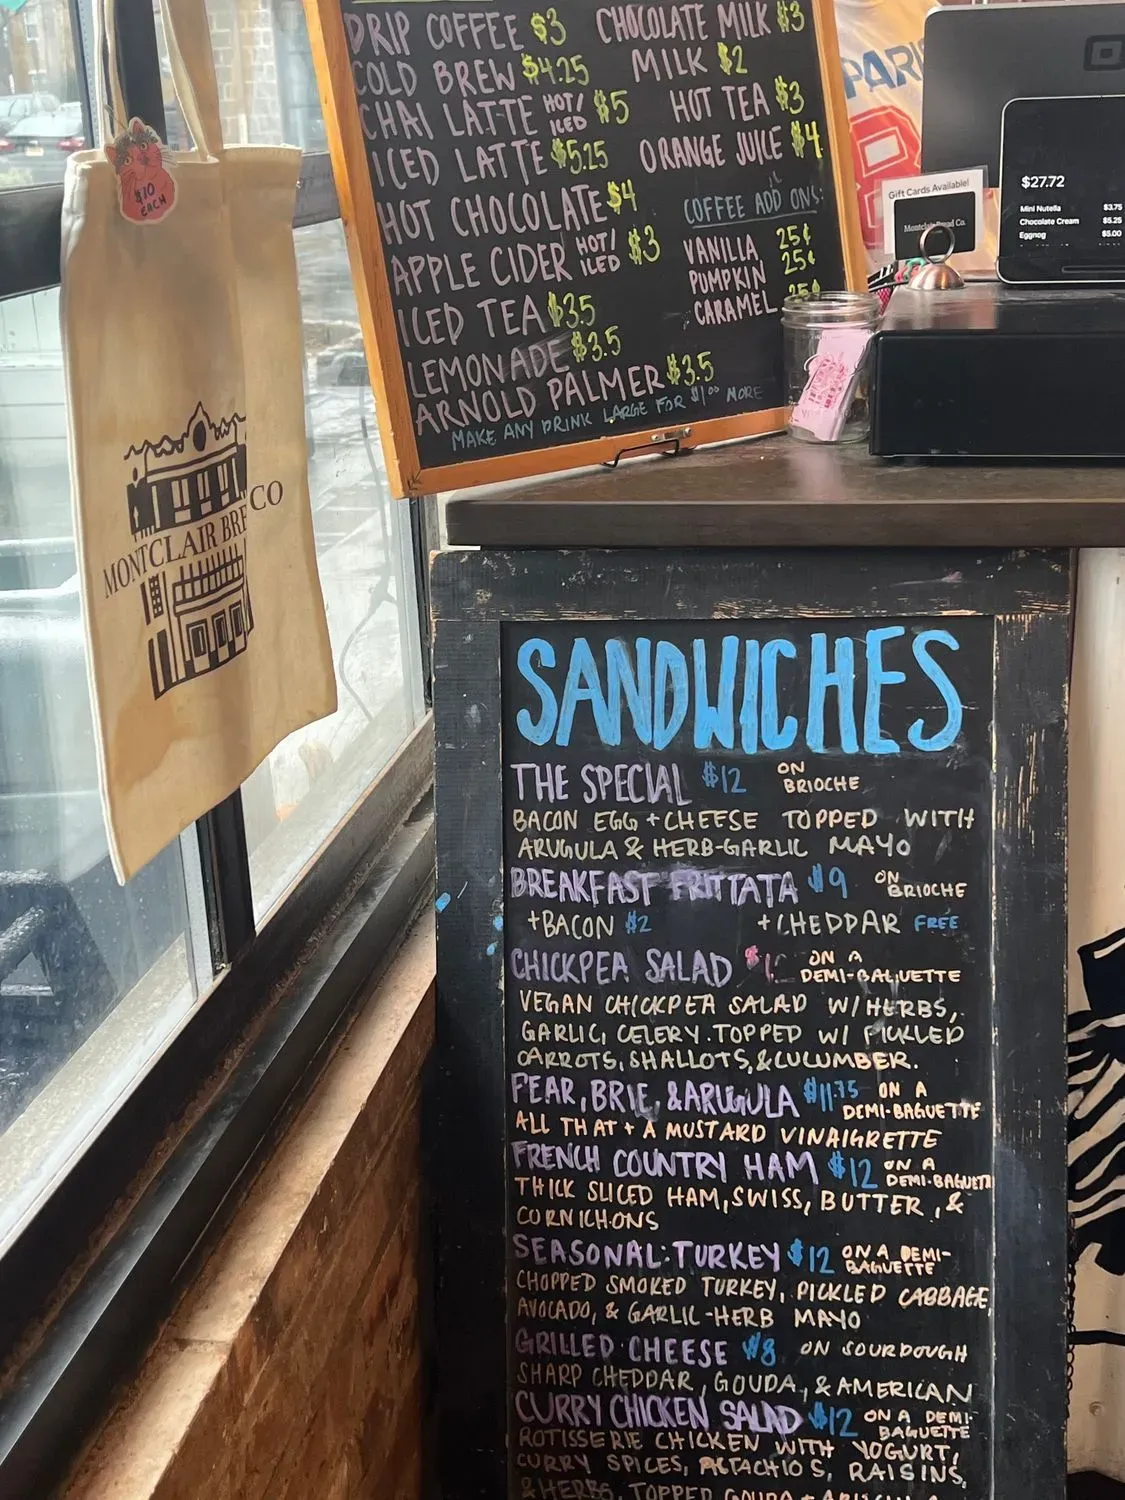 DRIP COFFEE $3
COLD BREW $4.25
CHAI LATTE HOT/ICED $5
ICED LATTE $5.25
HOT CHOCOLATE $4
APPLE CIDER HOT/ICED $3
ICED TEA $3.5
LEMONADE $3.5
ARNOLD PALMER $3.5
MAKE ANY DRINK LARGE FOR $1⁰⁰ MORE
CHOCOLATE MILK $3
MILK $2
HOT TEA $3
ORANGE JUICE $4
COFFEE ADD ONS:
VANILLA 25¢
PUMPKIN 25¢
CARAMEL 25¢
PARI
Gift Cards Available!
Montclair Bread Co.
$27.72
Mini Nutella $3.75
Chocolate Cream $5.25
Eggnog $5.00
$10
EACH
MONTCLAIR BRE CO
SANDWICHES
THE SPECIAL $12 ON BRIOCHE
BACON EGG + CHEESE TOPPED WITH
ARUGULA & HERB-GARLIC MAYO
BREAKFAST FRITTATA $9 ON BRIOCHE
+BACON $2 +CHEDDAR FREE
CHICKPEA SALAD ON A DEMI-BAGUETTE
VEGAN CHICKPEA SALAD W/ HERBS,
GARLIC, CELERY. TOPPED W/ PICKLED
CARROTS, SHALLOTS, & CUCUMBER.
PEAR, BRIE, & ARUGULA $11.75 ON A DEMI-BAGUETTE
ALL THAT + A MUSTARD VINAIGRETTE
FRENCH COUNTRY HAM $12 ON A DEMI-BAGUETT
THICK SLICED HAM, SWISS, BUTTER, &
CORNICHONS
SEASONAL: TURKEY $12 ON A DEMI-BAGUETTE
CHOPPED SMOKED TURKEY, PICKLED CABBAGE,
AVOCADO, & GARLIC-HERB MAYO
GRILLED CHEESE $8 ON SOURDOUGH
SHARP CHEDDAR, GOUDA, & AMERICAN
CURRY CHICKEN SALAD $12 ON A DEMI-BAGUETTE
ROTISSERIE CHICKEN WITH YOGURT,
CURRY SPICES, PISTACHIOS, RAISINS,
& HERBS, TOPPED GOUDA +